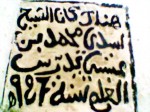 هذا
كان الشيخ
سيدي محمد بن
عيسى يدرس
العلم سنة ٩٤٦